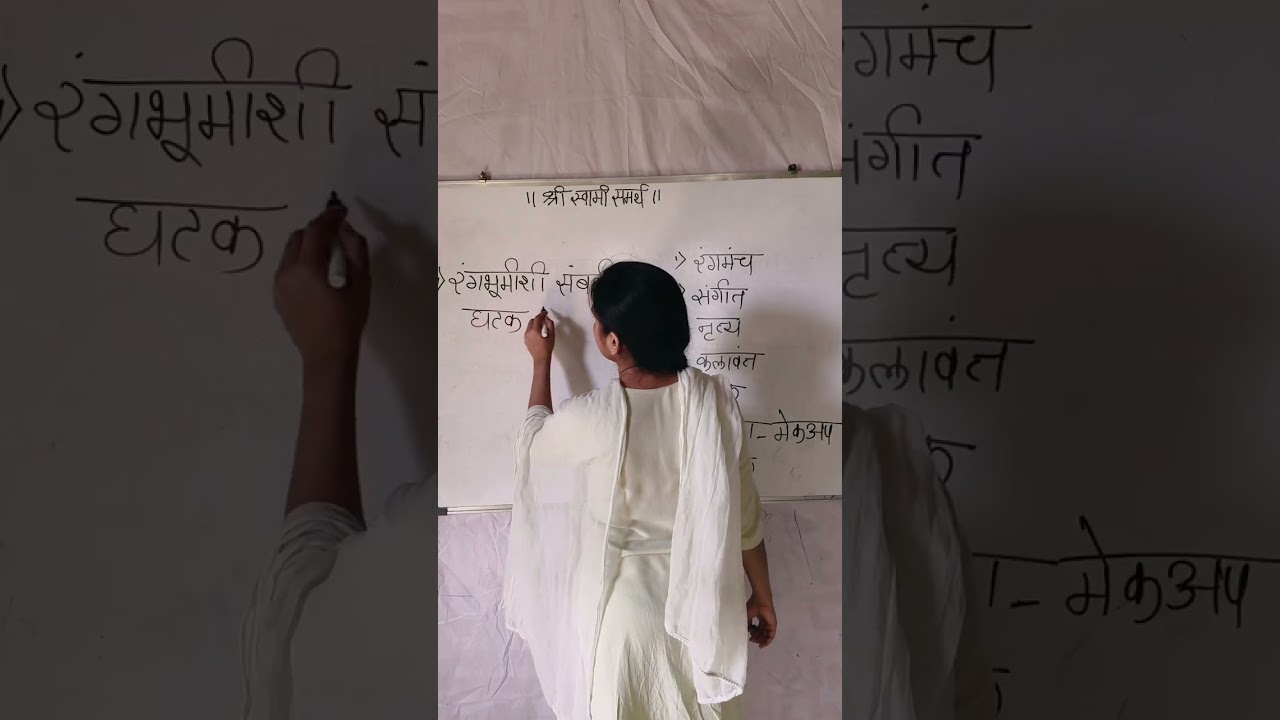 ॥ श्री स्वामी समर्थ ॥
रंगभूमीशी
घटक
> रंगमंच
संगीत
नृत्य
कलावंत
- मेकअप